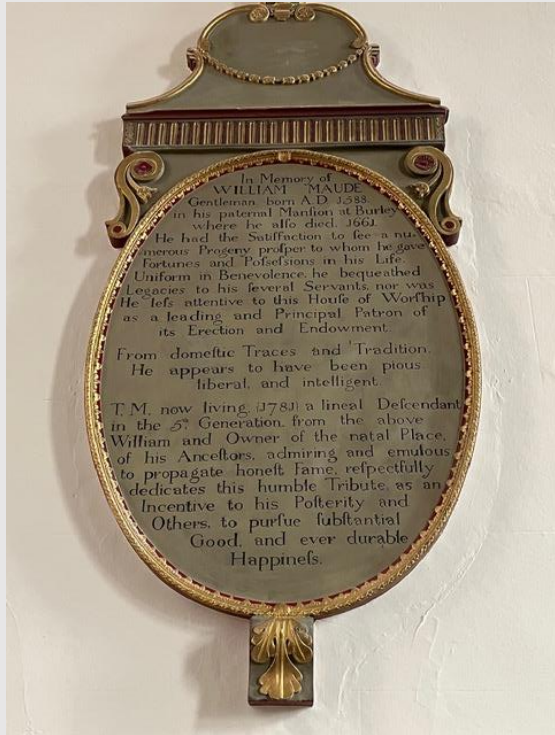 In Memory of
WILLIAM MAUDE
Gentleman born A.D. 1588.
in his paternal Manſion at Burley
where he alſo died, 1661.
He had the Satiſfaction to ſee a nu-
merous Progeny proſper to whom he gave
Fortunes and Poſseſsions in his Life.
Uniform in Benevolence, he bequeathed
Legacies to his ſeveral Servants, nor was
He leſs attentive to this Houſe of Worſhip
as a leading and Principal Patron of
its Erection and Endowment.
From domeſtic Traces and Tradition.
He appears to have been pious
liberal, and intelligent
T. M, now living, (1781) a lineal Deſcendant
in the 5th Generation from the above
William and Owner of the natal Place,
of his Anceſtors, admiring and emulous
to propagate honeſt Fame, reſpectfully
dedicates this humble Tribute, as an
Incentive to his Poſterity and
Others, to purſue ſubſtantial
Good, and ever durable
Happineſs.